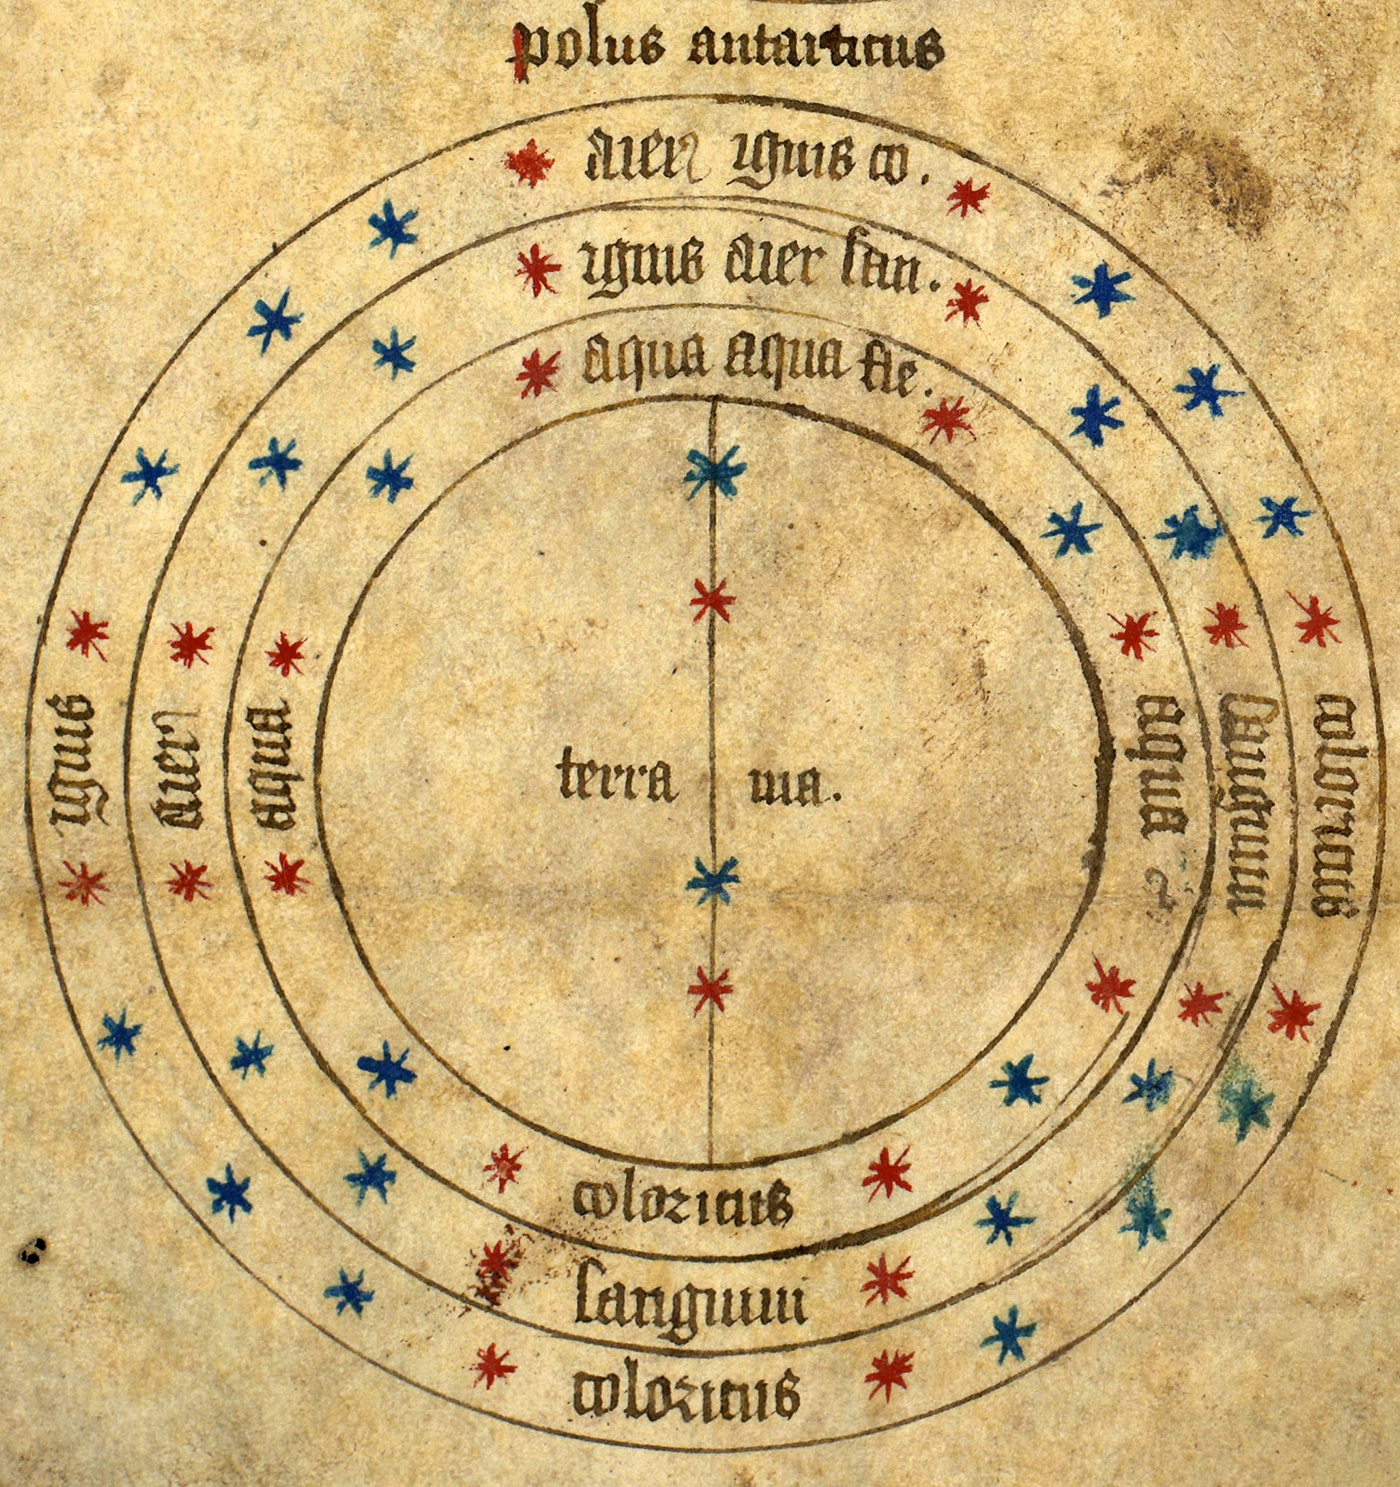 polus antarticus
aier ignis co.
ignis aier san.
aqua aqua fle.
ignis
aier
aqua
terra ma.
aqua
sanguini
coloricus
coloricus
sanguini
coloricus